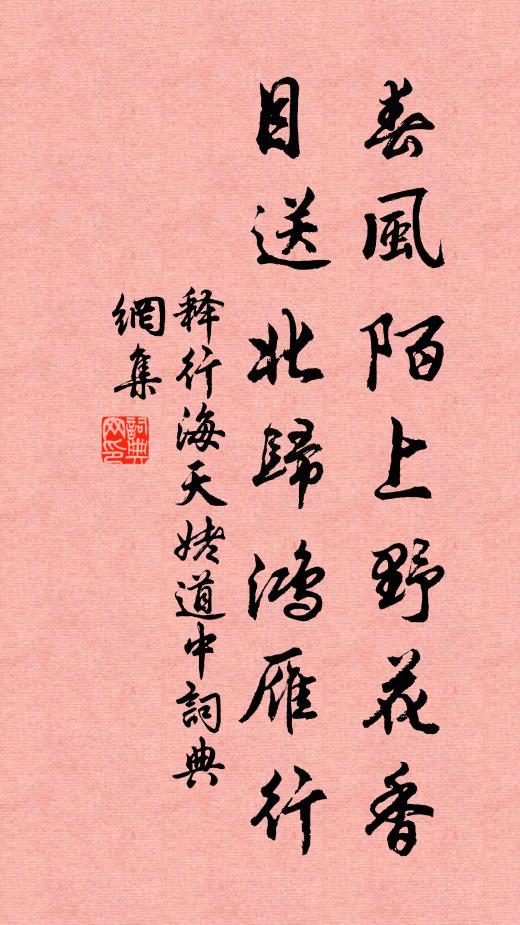 春風陌上野花香
目送北歸鴻雁行
釋行海天姥道中詞典
網集
詞典網印